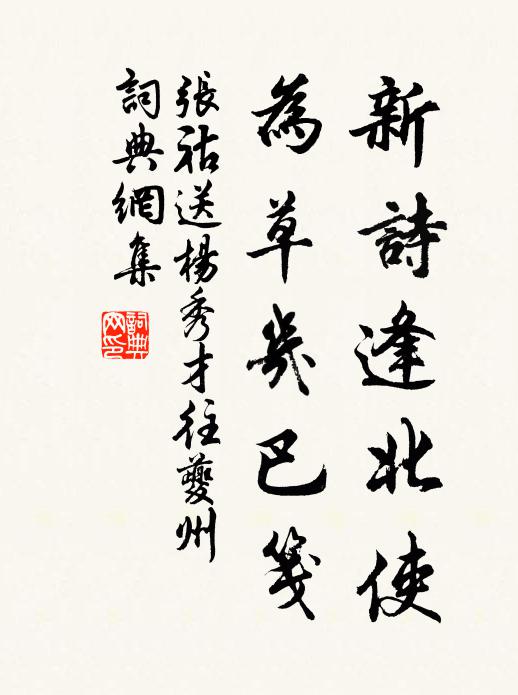 新詩逢北使
為草幾巴箋
張祜送楊秀才往夔州
詞典網集
詞典
网印